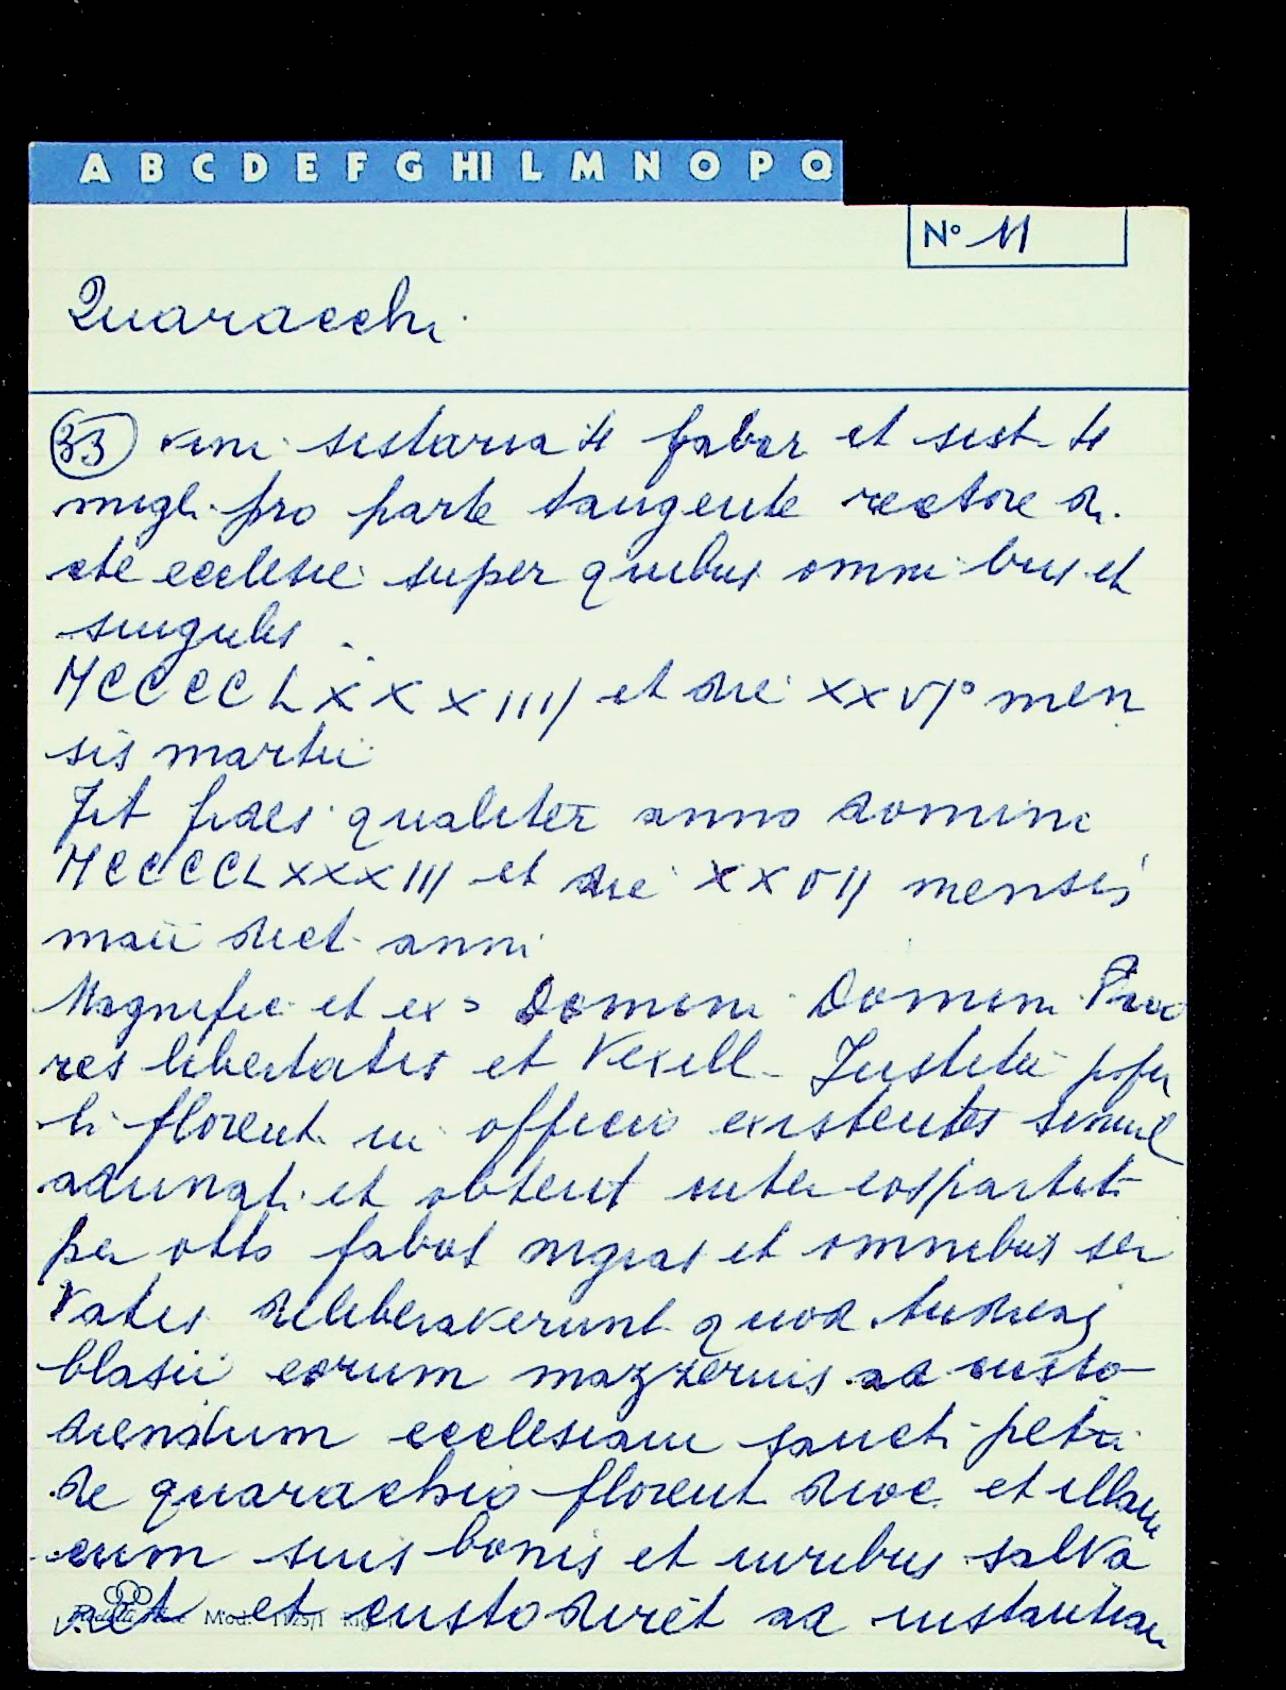 A B C D E F G HI L M N O P Q
Nº 11
Quaracchi
33 vini sistaria 4 fabar et sist 4
migl. pro parte tangente rectore di
cte ecclesie super quibus omnibus et
singulis
MCCCCLXXXIIII et die XXVIº men
sis martii
fit fides qualiter anno domini
MCCCCLXXXIII et die XXVII mensis
maii dict anni
Magnifici et ex Domini Domini Prio
res libertatis et Vexill Justitie popu
li florent in officio existentes simul
adunati et obtent inter eos partit
per otto fabas nigras et omnibus ser
vatis deliberaverunt quod
blasii eorum mazzerius ad custo
diendum ecclesiam sancti petri
de quarachio florent dioc et illam
cum suis bonis et iuribus salva
et custodiret ad instantiam